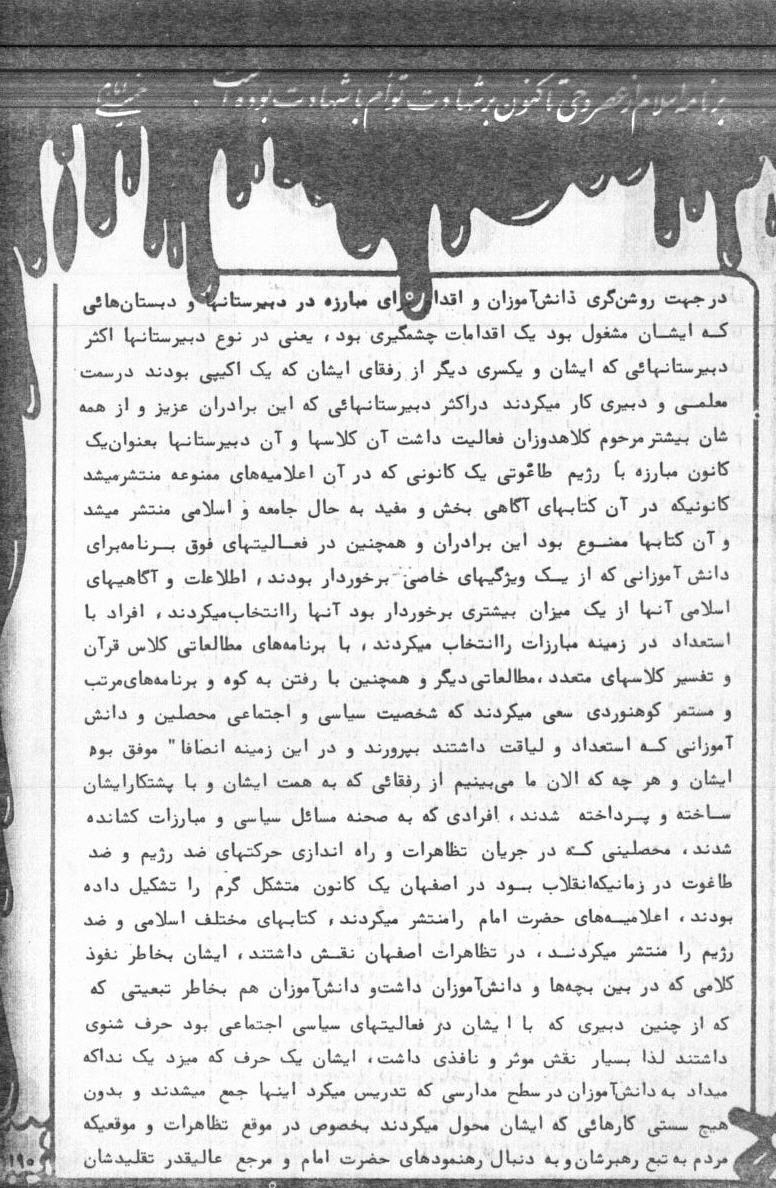 برنامه اسلام از عصر وحی تاکنون بر شهادت توأم با شهادت بوده است .
امام خمینی
در جهت روشن‌گری دانش‌آموزان و اقدام برای مبارزه در دبیرستانها و دبستان‌هائی
کـه ایشـان مشغول بود یک اقدامات چشمگیری بود، یعنی در نوع دبیرستانها اکثر
دبیرستانهائی که ایشان و یکسری دیگر از رفقای ایشان که یک اکیپی بودند درسمت
معلمـی و دبیری کار میکردند دراکثر دبیرستانهائی که این برادران عزیز و از همه
شان بیشتر مرحوم کلاهدوزان فعالیت داشت آن کلاسها و آن دبیرستانها بعنوان‌یک
کانون مبارزه با رژیم طاغوتی یک کانونی که در آن اعلامیه‌های ممنوعه منتشرمیشد
کانونیکه در آن کتابهای آگاهی بخش و مفید به حال جامعه و اسلامی منتشر میشد
و آن کتابها ممنـوع بود این برادران و همچنین در فعـالیتهای فوق بـرنامه‌برای
دانش آموزانی که از یـک ویژگیهای خاصی برخوردار بودند، اطلاعات و آگاهیهای
اسلامی آنها از یک میزان بیشتری برخوردار بود آنها راانتخاب‌میکردند، افراد با
استعداد در زمینه مبارزات راانتخاب میکردند، با برنامه‌های مطالعاتی کلاس قرآن
و تفسیر کلاسهای متعدد،مطالعاتی دیگر و همچنین با رفتن به کوه و برنامه‌های‌مرتب
و مستمر کوهنوردی سعی میکردند که شخصیت سیاسی و اجتماعی محصلین و دانش
آموزانی کـه استعداد و لیاقت داشتند بپرورند و در این زمینه انصافا" موفق بوده
ایشان و هر چه که الان ما می‌بینیم از رفقائی که به همت ایشان و با پشتکارایشان
سـاخته و پـرداخته شدند، افرادی که به صحنه مسائل سیاسی و مبارزات کشانده
شدند، محصلینی کـه در جریان تظاهرات و راه اندازی حرکتهای ضد رژیم و ضد
طاغوت در زمانیکه‌انقلاب بـود در اصفهان یک کانون متشکل گرم را تشکیل داده
بودند، اعلامیـه‌های حضرت امام رامنتشر میکردند، کتابهای مختلف اسلامی و ضد
رژیم را منتشر میکردنـد، در تظاهرات اصفهان نقـش داشتند، ایشان بخاطر نفوذ
کلامی که در بین بچه‌ها و دانش‌آموزان داشت‌و دانش‌آموزان هم بخاطر تبعیتی که
که از چنین دبیری که با ایشان در فعالیتهای سیاسی اجتماعی بود حرف شنوی
داشتند لذا بسیار نقش موثر و نافذی داشت، ایشان یک حرف که میزد یک نداکه
میداد به دانش‌آموزان در سطح مدارسی که تدریس میکرد اینها جمع میشدند و بدون
هیچ سستی کارهائی که ایشان محول میکردند بخصوص در موقع تظاهرات و موقعیکه
مردم به تبع رهبرشان‌وبه دنبال رهنمودهای حضرت امام و مرجع عالیقدر تقلیدشان
۱۹۰